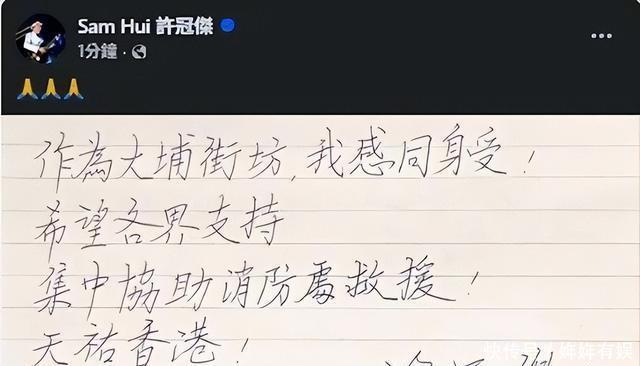 Sam Hui 許冠傑
1分鐘 ·
🙏🙏🙏
作為大埔街坊,我感同身受!
希望各界支持
集中協助消防處救援!
天祐香港!
快传号/姩姩有娱